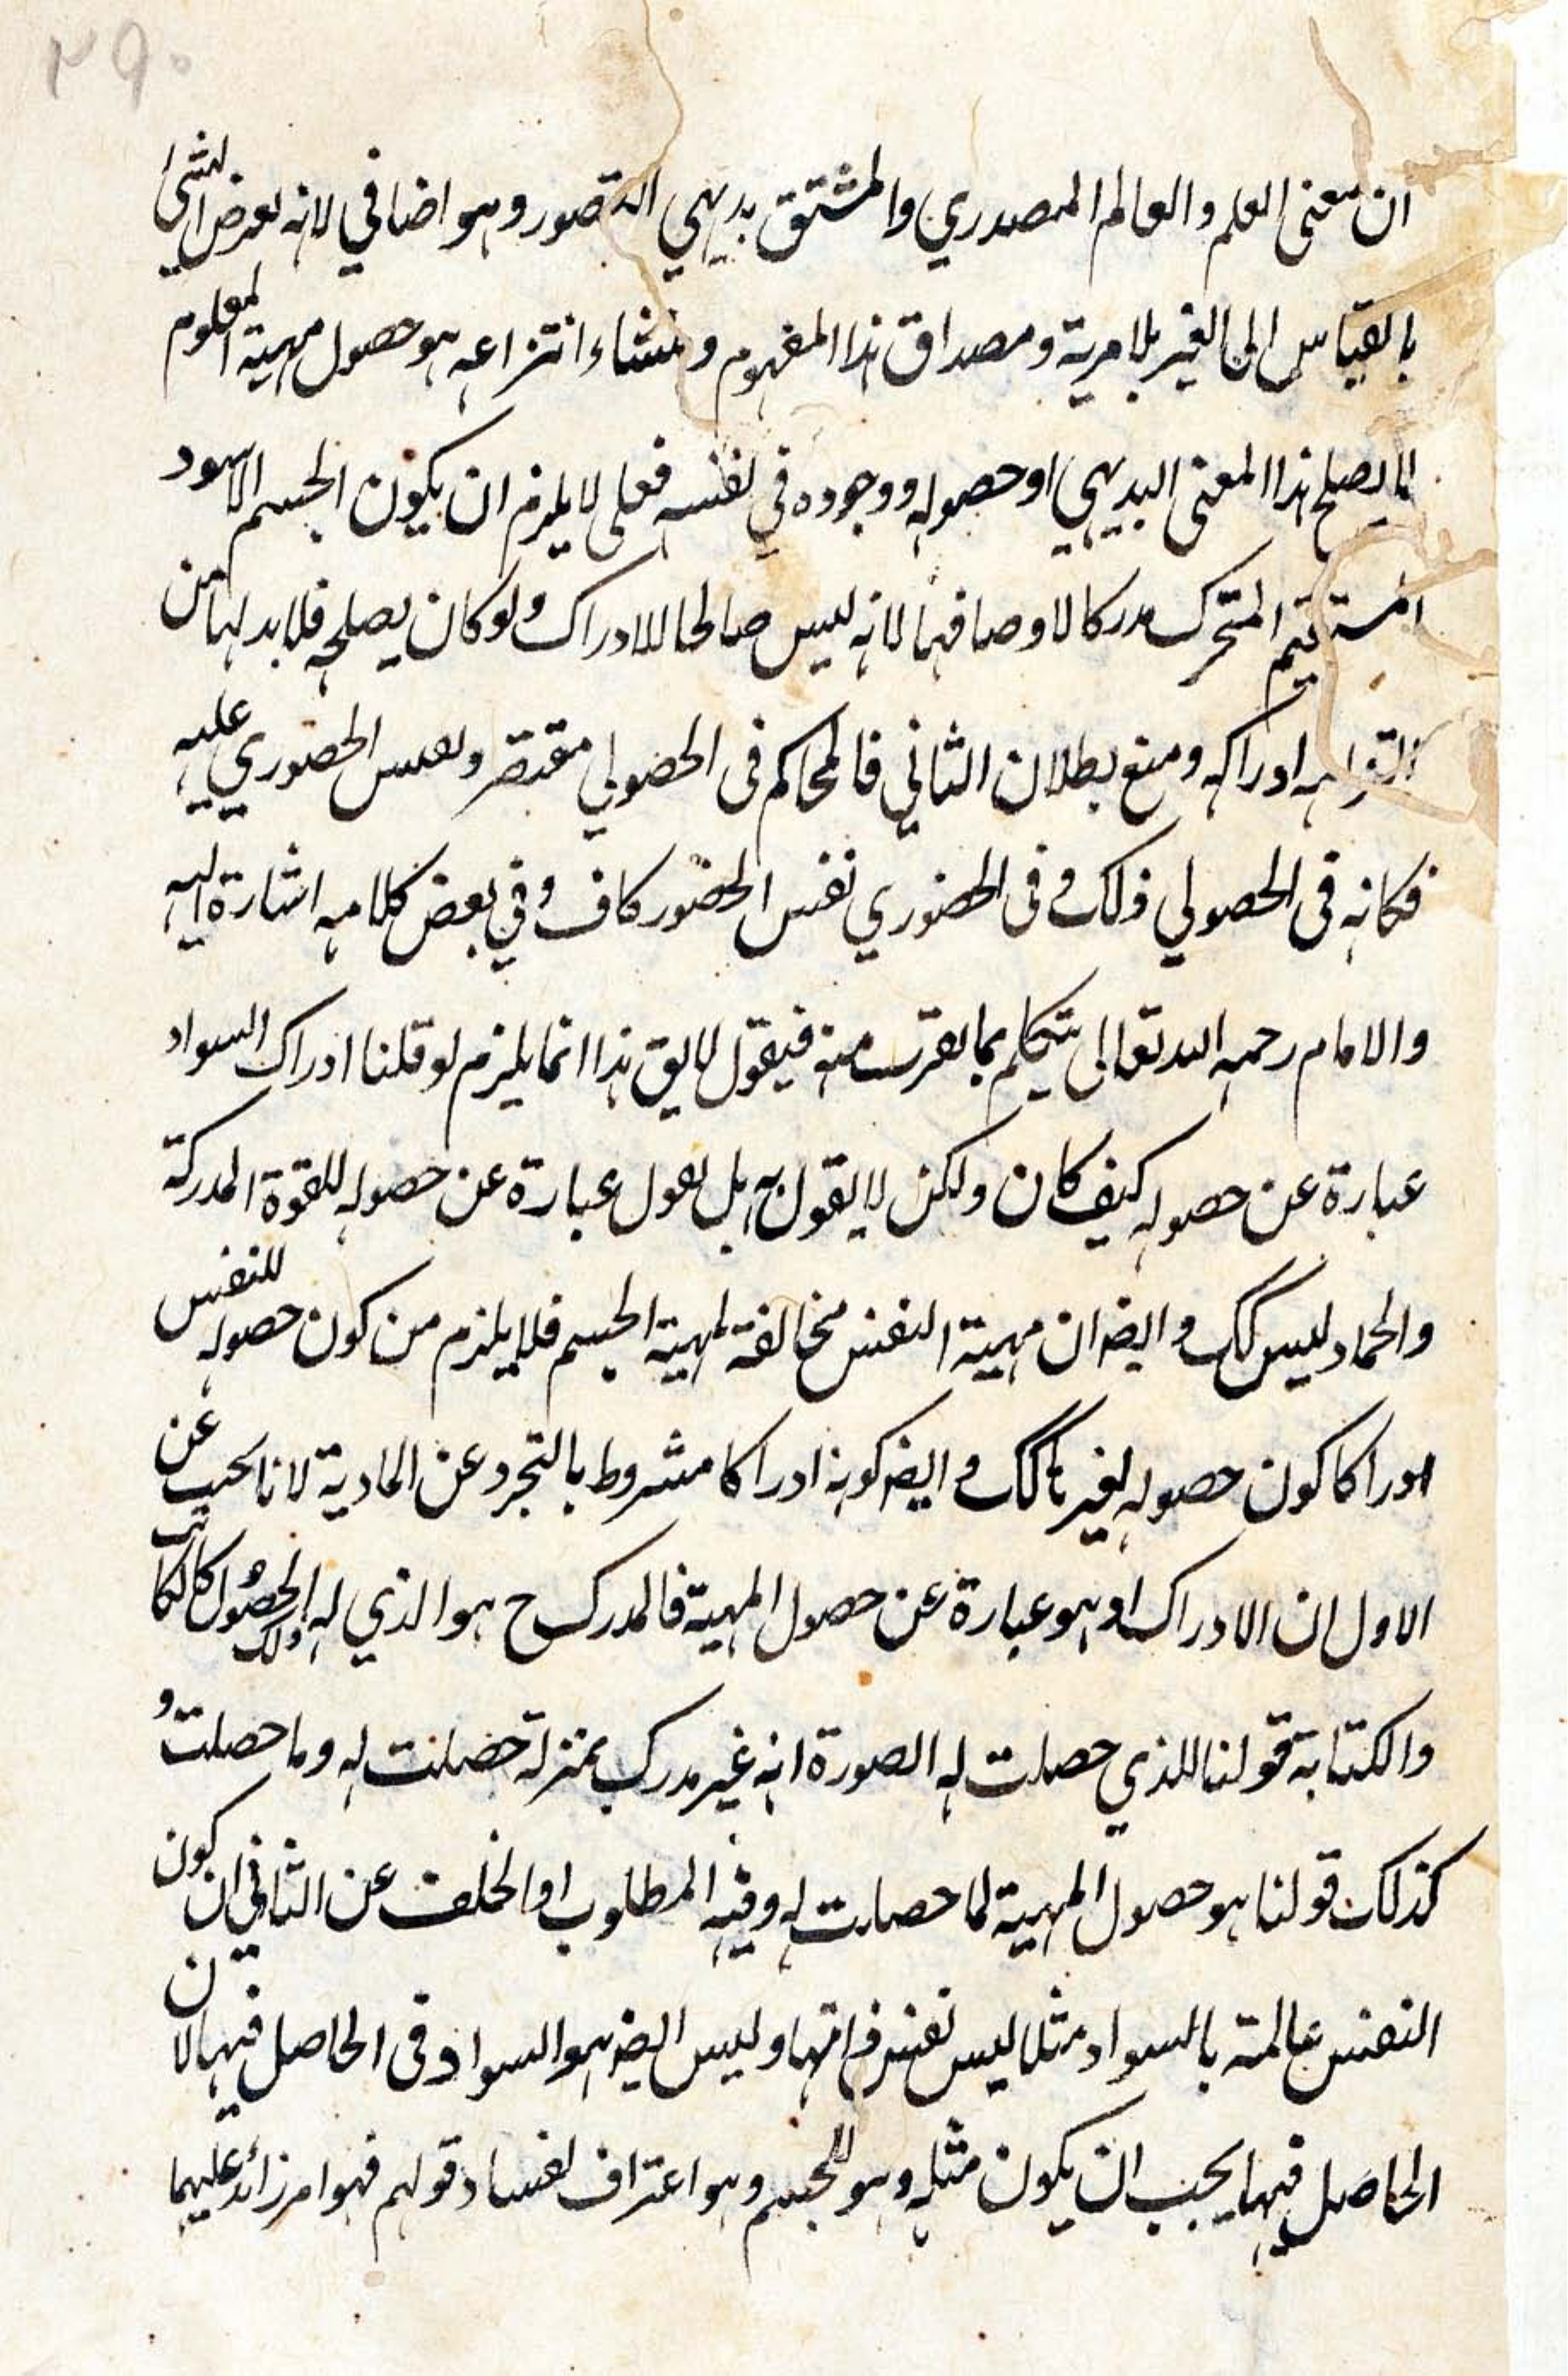 ٢٩٠
ان معنى العلم والعالم المصدري والمشتق بديهي التصور وهو اضافي لانه يعرض الشئ
بالقياس الى الغير بلا مرية ومصداق هذا المفهوم ومنشاء انتزاعه هو حصول مهية المعلوم
لما يصلح هذا المعنى البديهي او حصوله ووجوده في نفسه فعلى لا يلزم ان يكون الجسم الاسود
المستقيم المتحرك مدركا لاوصافها لانه ليس صالحا للادراك ولو كان يصلحه فلا بد لها من
ادراكه ومنع بطلان الثاني فالمحاكم فى الحصولي مقتصر ونفس الحضوري عليه
فكانه فى الحصولي ذلك وفى الحضوري نفس الحضور كاف وفي بعض كلامه اشارة اليه
والامام رحمه الله تعالى يتكلم بما يقرب منه فيقول لا يق هذا انما يلزم لو قلنا ادراك السواد
عبارة عن حصوله كيف كان ولكن لا يقول به بل نقول عبارة عن حصوله للقوة المدركة
والجماد ليس كك وايضا ان مهية النفس مخالفة لمهية الجسم فلا يلزم من كون حصوله للنفس
ادراكا كون حصوله لغيرها كك وايضا كونه ادراكا مشروط بالتجرد عن المادية لانا نجيب عن
الاول ان الادراك اذ هو عبارة عن حصول المهية فالمدرك ح هو الذي له ذلك الحصول كالكاتب
والكتابة قولنا للذي حصلت له الصورة انه غير مدرك بمنزلة حصلت له وما حصلت و
كذلك قولنا هو حصول المهية لما حصلت له وفيه المطلوب او الخلف عن الثاني ان كون
النفس عالمة بالسواد مثلا ليس نفس ذاتها وليس ايضا هو السواد فى الحاصل فيها لان
الحاصل فيها يجب ان يكون مثله وهو للجسم وهو اعتراف لفساد قولهم فهو امر زائد عليهما